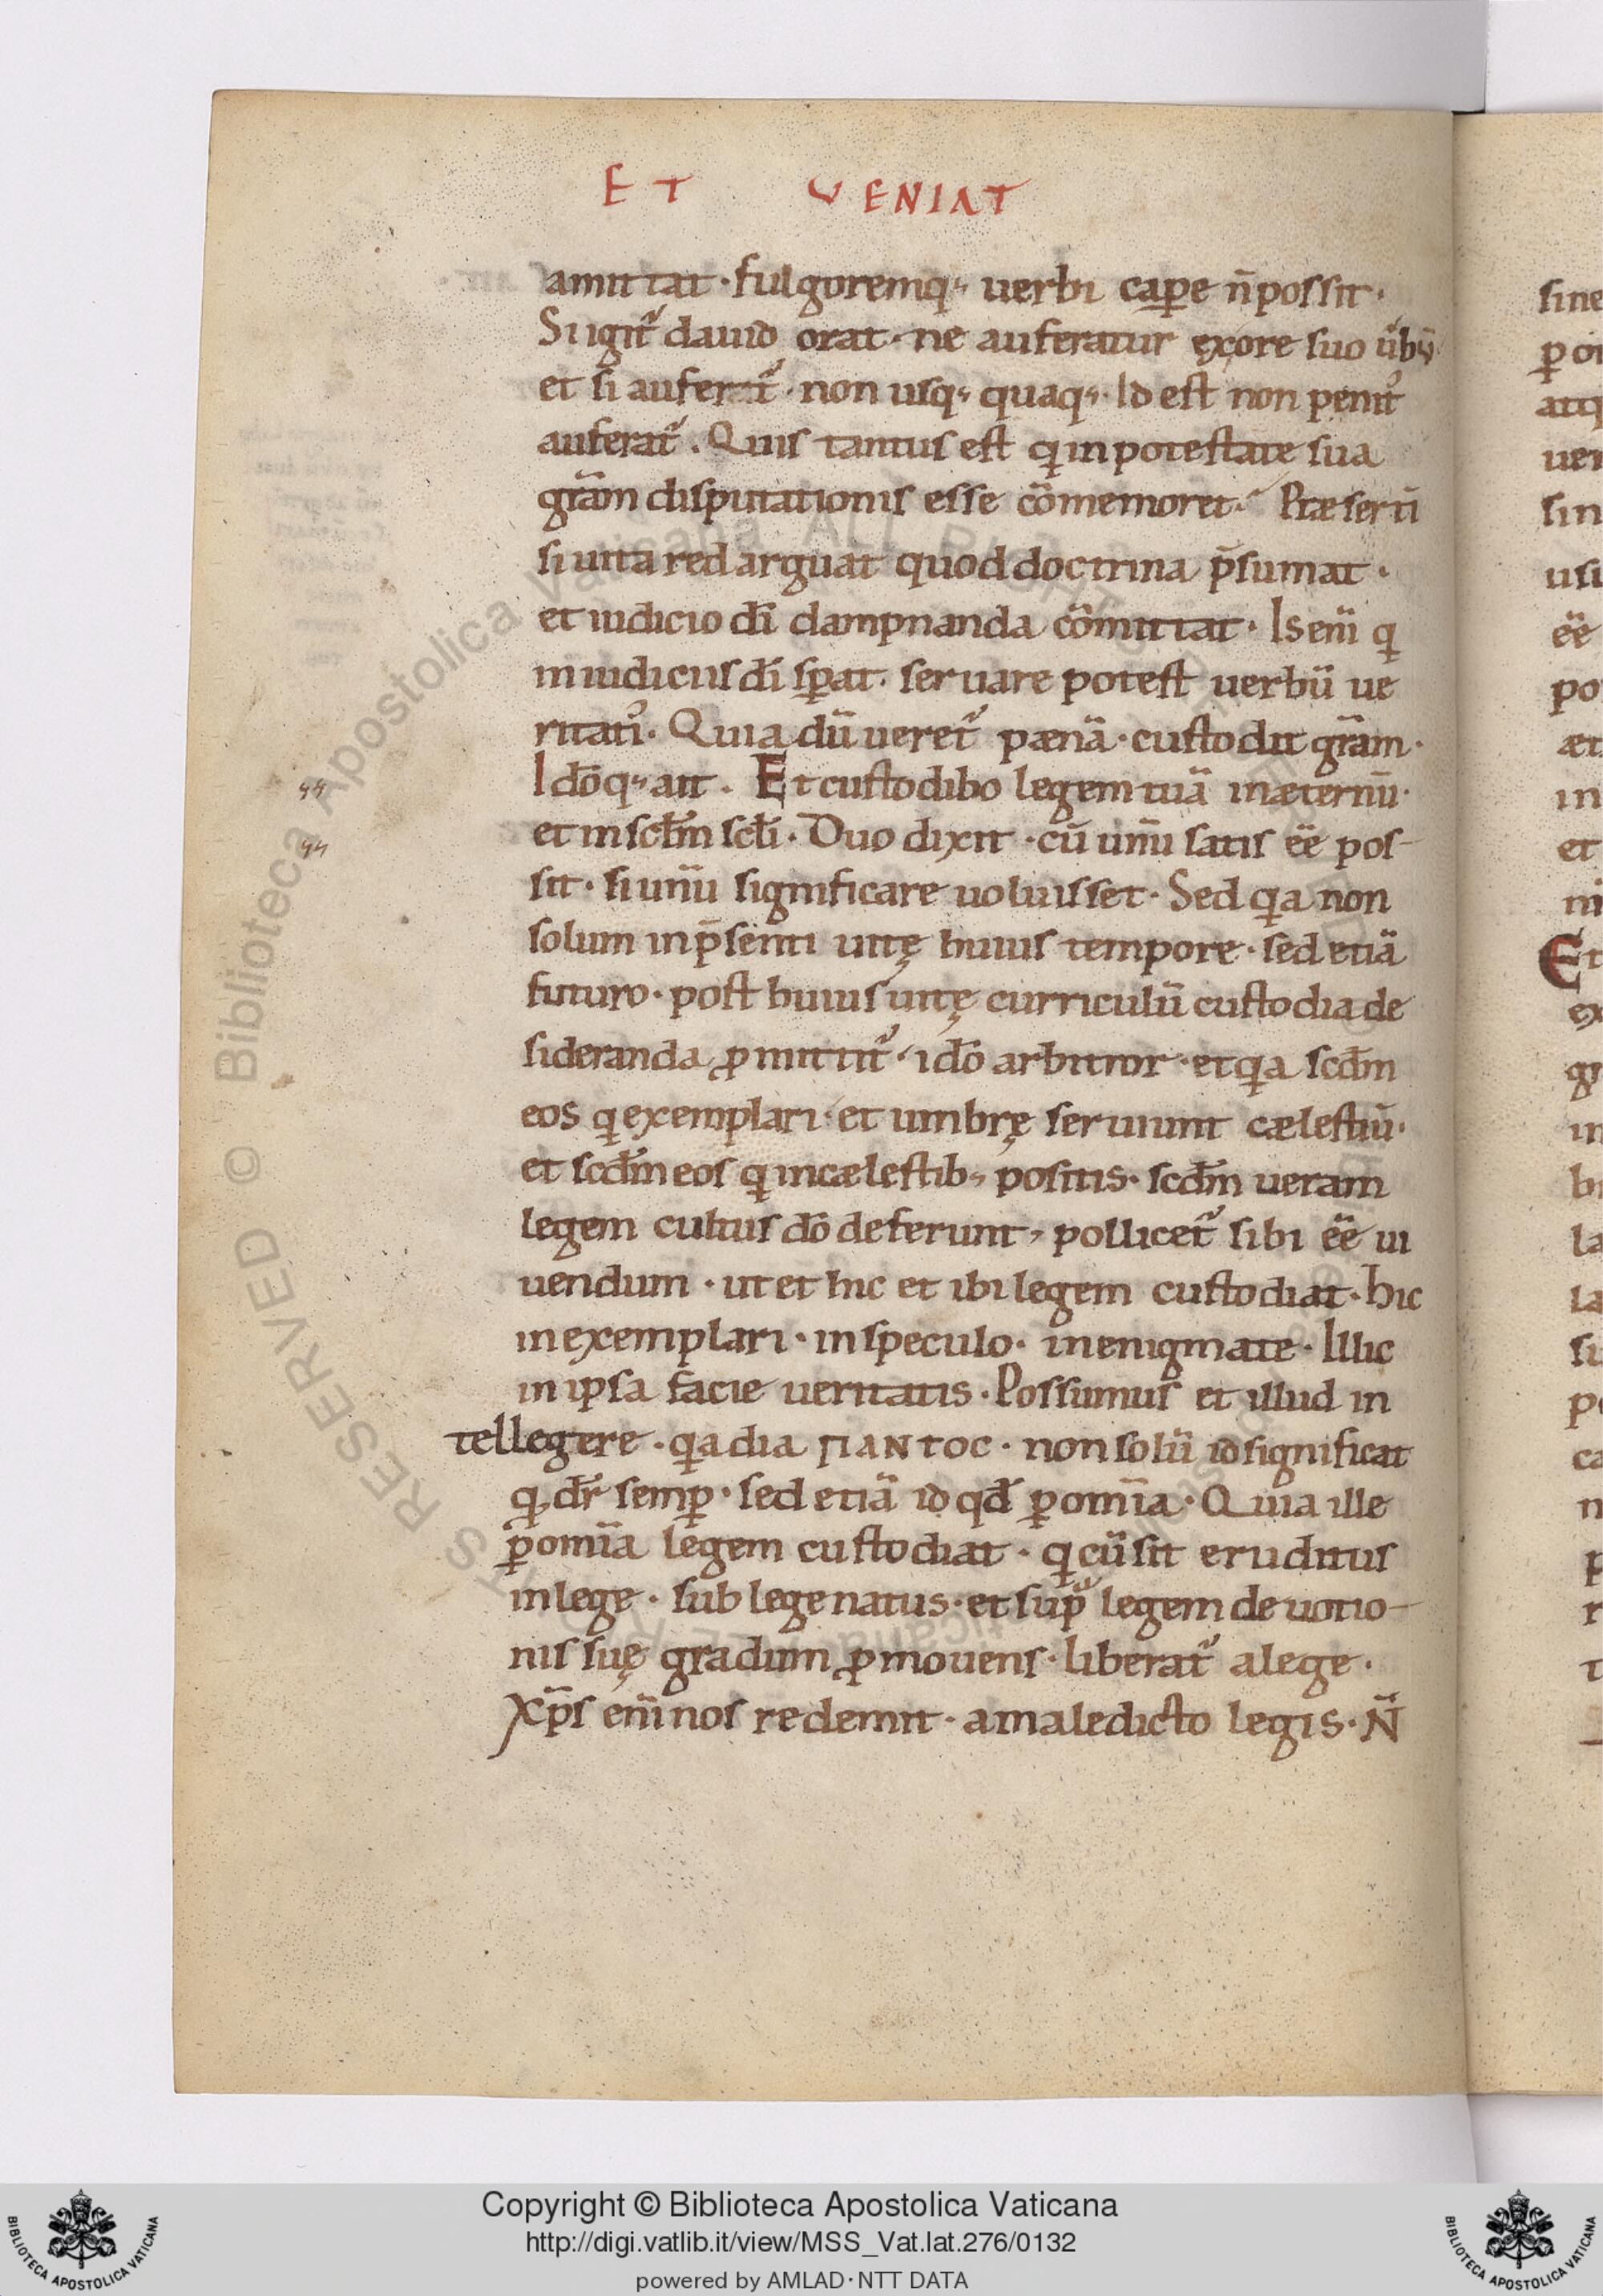 ET VENIAT
amittat · fulgoremq; uerbi cap̲e n̄ possit ·
Si igit᷑ dauid orat · ne auferatur ex ore suo u᷑bū
et si auferat᷑ · non usq; quaq; · Id est non penit᷒
auferat᷑ . Quis tantus est q̇ in potestate sua
grām disputationis esse cōmemoret · Præsertī
si uita redarguat quod doctrina p̄sumat ·
et iudicio dī dampnanda cōmittat · Is enī q̇
in iudiciis dī sꝑat · seruare potest uerbū ue
ritatı᷒ · Quia dū ueret᷑ pænā · custodit grām ·
Idōq; ait . Et custodibo legem tuā in æternū ·
et in sc̄lm sc̄li · Duo dixit · cū unū satis ēē pos-
sit · si unū significare uoluisset · Sed q̇a non
solum in p̄senti uitę huius tempore · sed etiā
futuro · post huius uitę curriculū custodia de
sideranda ꝓmittit᷑ · idō arbitror · et q̇a scdm̄
eos q̇ exemplari · et umbrę seruiunt cælestiū ·
et scdm̄ eos q̇ in cælestib; positis · scdm̄ ueram
legem cultus dō deferunt, pollicet᷑ sibi ēē ui
uendum · ut et hic et ibi legem custodiat · hic
in exemplari · in speculo · in enigmate · Illic
in ipsa facie ueritatis · Possumus et illud in
tellegere · q̇a dia ΠΑΝΤΟC · non solū id significat
q̇ dr̄ semꝑ · sed etiā id qd̄ ꝑ omīa · Quia ille
ꝑ omīa legem custodiat · q̇ cū sit eruditus
in lege · sub lege natus · et sup᷑ legem deuotio-
nis suę gradum ꝓmouens · liberat᷑ a lege ·
Xp̄s enī nos redemit · a maledicto legis · N̄
sine
ꝑ
ue
sin
usi
ēē
po
æt
in
et
Et
ex
in
la
la
ca
© Biblioteca Apostolica Vaticana ALL RIGHTS RESERVED
Copyright © Biblioteca Apostolica Vaticana
http://digi.vatlib.it/view/MSS_Vat.lat.276/0132
powered by AMLAD·NTT DATA
BIBLIOTECA APOSTOLICA VATICANA
BIBLIOTECA APOSTOLICA VATICANA